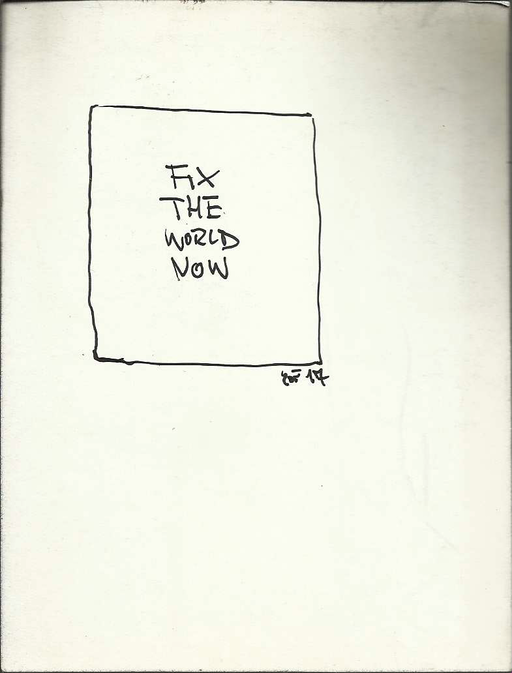 FIX
THE
WORLD
NOW
17